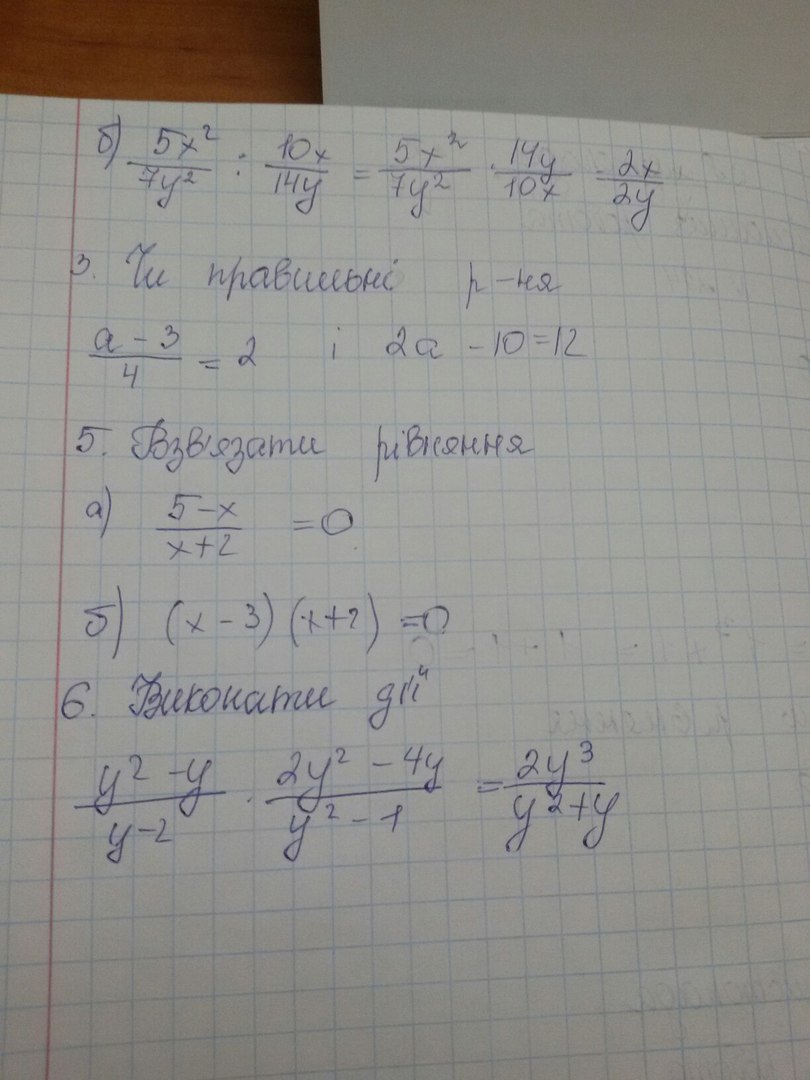 б) 5x²/7y² : 10x/14y = 5x²/7y² · 14y/10x = 2x/2y
3. Чи правильні р-ня
a-3/4 = 2 і 2a - 10 = 12
5. Взв'язати рівняння
а) 5-x/x+2 = 0
б) (x - 3)(x+2) = 0
6. Виконати дії
y² - y/y-2 · 2y² - 4y/y² - 1 = 2y³/y²+y